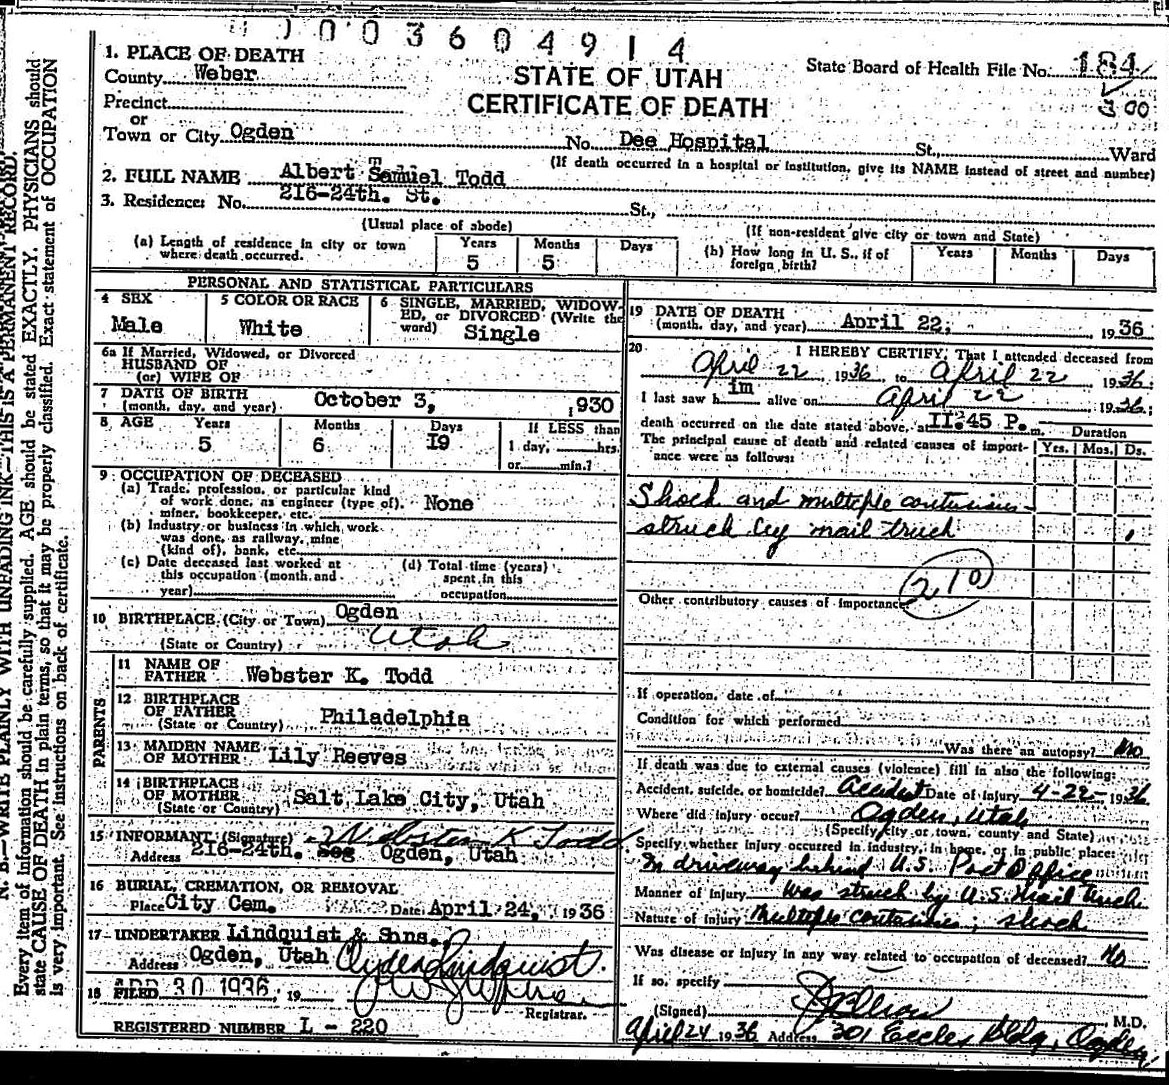 0003604914
1. PLACE OF DEATH
County Weber
STATE OF UTAH
State Board of Health File No. 184
Precinct
CERTIFICATE OF DEATH
300
or
Town or City Ogden No. Dee Hospital St., Ward
(If death occurred in a hospital or institution, give its NAME instead of street and number)
2. FULL NAME Albert Samuel Todd
3. Residence: No. 216-24th. St. St.,
(Usual place of abode) (If non-resident give city or town and State)
(a) Length of residence in city or town where death occurred. Years 5 Months 5 Days
(b) How long in U. S., if of foreign birth? Years Months Days
PERSONAL AND STATISTICAL PARTICULARS
4 SEX Male
5 COLOR OR RACE White
6 SINGLE, MARRIED, WIDOWED, or DIVORCED (Write the word) Single
6a If Married, Widowed, or Divorced
HUSBAND OF
(or) WIFE OF
7 DATE OF BIRTH
(month, day, and year) October 3, 1930
8 AGE Years 5 Months 6 Days 19 If LESS than
1 day, hrs.
or min.?
9 OCCUPATION OF DECEASED
(a) Trade, profession, or particular kind
of work done, as engineer (type of),
miner, bookkeeper, etc. None
(b) Industry or business in which work
was done, as railway, mine
(kind of), bank, etc.
(c) Date deceased last worked at
this occupation (month and
year)
(d) Total time (years)
spent in this
occupation
10 BIRTHPLACE (City or Town) Ogden
(State or Country) Utah
PARENTS
11 NAME OF
FATHER Webster K. Todd
12 BIRTHPLACE
OF FATHER
(State or Country) Philadelphia
13 MAIDEN NAME
OF MOTHER Lily Reeves
14 BIRTHPLACE
OF MOTHER
(State or Country) Salt Lake City, Utah
15 INFORMANT (Signature) Webster K Todd
Address 216-24th. Ogden, Utah
16 BURIAL, CREMATION, OR REMOVAL
Place City Cem. Date April 24, 1936
17 UNDERTAKER Lindquist & Sons.
Address Ogden, Utah Clyde Lindquist.
18 FILED APR 30 1936, 19
Registrar.
REGISTERED NUMBER L - 220
19 DATE OF DEATH
(month, day, and year) April 22, 1936
20 I HEREBY CERTIFY, That I attended deceased from
April 22, 1936 to April 22 1936
I last saw him alive on April 22 1936;
death occurred on the date stated above, at 11:45 P. m.
The principal cause of death and related causes of importance were as follows:
Duration
Yrs. Mos. Ds.
Shock and multiple contusions-
struck by mail truck
210
Other contributory causes of importance
If operation, date of
Condition for which performed
Was there an autopsy? No
If death was due to external causes (violence) fill in also the following:
Accident, suicide, or homicide? Accident Date of injury 4-22-1936
Where did injury occur? Ogden, Utah
(Specify city or town, county and State)
Specify whether injury occurred in industry, in home, or in public place:
In driveway behind U.S. Post Office
Manner of Injury was struck by U.S. Mail Truck
Nature of Injury Multiple contusions; shock
Was disease or injury in any way related to occupation of deceased? No
If so, specify
(Signed) M.D.
April 24 1936 Address 301 Eccles Bldg, Ogden,
N. B.—WRITE PLAINLY WITH UNFADING INK—THIS IS A PERMANENT RECORD.
Every item of information should be carefully supplied. AGE should be stated EXACTLY. PHYSICIANS should
state CAUSE OF DEATH in plain terms, so that it may be properly classified. Exact statement of OCCUPATION
is very important. See instructions on back of certificate.